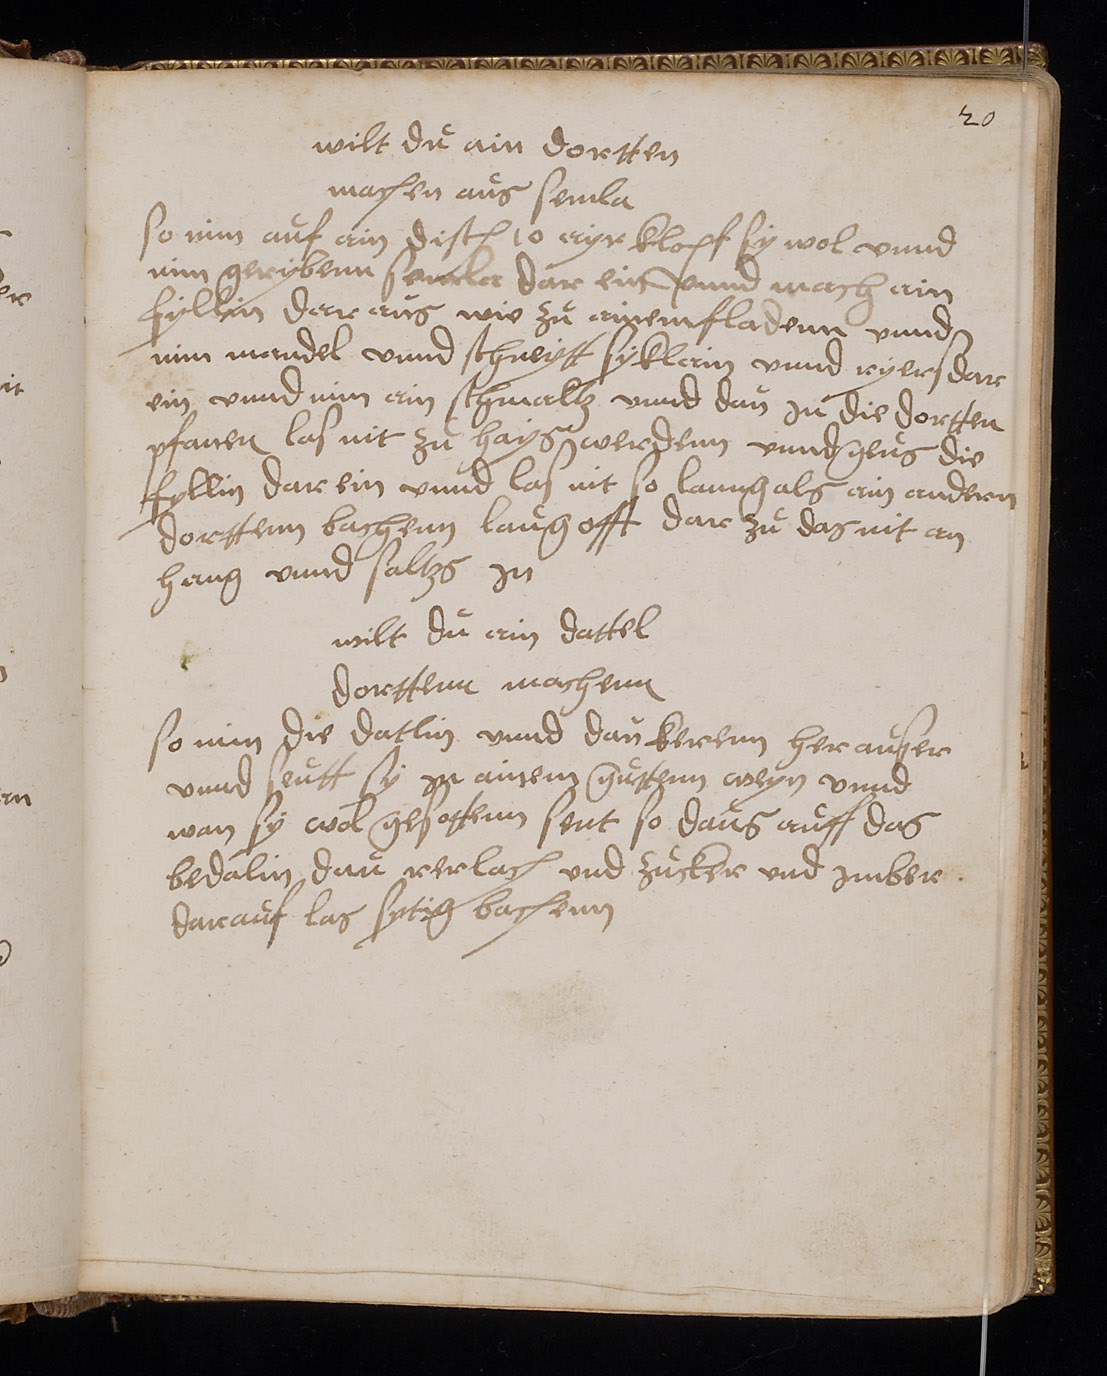 20
wilt du ain dortten
machen aus semla
so nim auf ain disch 10 ayr klopf sy wol vnnd
nim gerybenn semla dar ein vnnd mach ain
fyllin dar aus wie zu ainem fladenn vnnd
nim mandel vnnd schneytt sy klain vnnd ryers dar
ein vnnd nim ain schmaltz vnnd dau jn die dortten
pfanen las nit zu hays werdenn vnnd geus die
fyllin dar ein vnnd las nit so lanng als ain andern
dorttenn bachenn laug offt dar zu das nit an
hang vnnd saltzs jn
wilt du ain dattel
dorttenn machenn
so nim die datlin vnnd dau kerenn her auser
vnnd seutt sy jn ainem guttenn weyn vnnd
wan sy wol gesottenn sent so daus auff das
bedalin dau rerlach vnd zucker vnd jmber
darauf las sytig bachenn